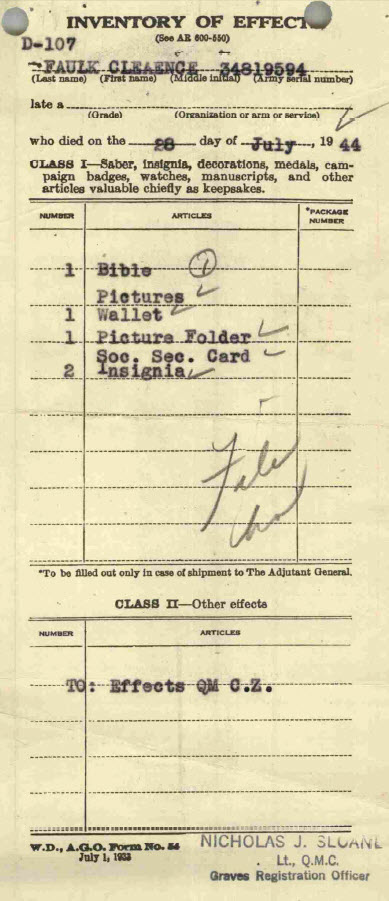 INVENTORY OF EFFECTS
(See AR 600-550)
D-107
FAULK CLEAENCE 34819594
(Last name) (First name) (Middle initial) (Army serial number)
late a
(Grade) (Organization or arm or service)
who died on the 28 day of July, 1944
CLASS I—Saber, insignia, decorations, medals, cam-
paign badges, watches, manuscripts, and other
articles valuable chiefly as keepsakes.
NUMBER ARTICLES *PACKAGE NUMBER
1 Bible 1
Pictures
1 Wallet
1 Picture Folder
Soc. Sec. Card
2 Insignia
File
*To be filled out only in case of shipment to The Adjutant General.
CLASS II—Other effects
NUMBER ARTICLES
TO: Effects QM C.Z.
W.D., A.G.O. Form No. 54
July 1, 1933
NICHOLAS J. SLOANE
Lt., Q.M.C.
Graves Registration Officer